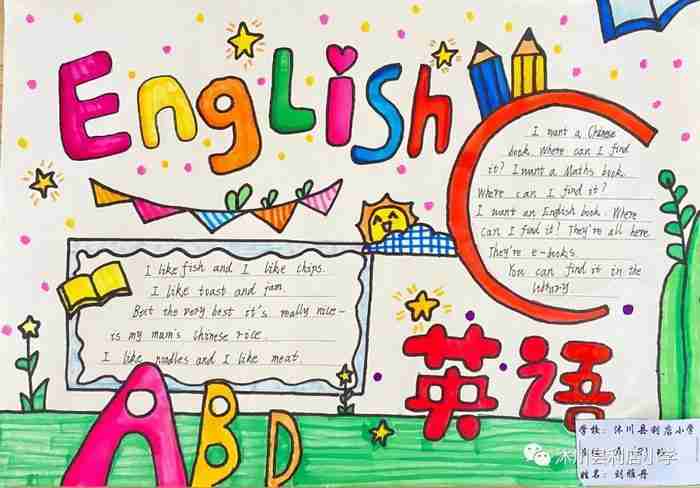 English
I want a Chinese
book. Where can I find
it? I want a Maths book.
Where can I find it?
I want an English book. Where
can I find it? They're all here.
They're e-books.
You can find it in the
library
I like fish and I like chips.
I like toast and jam.
But the very best it's really nice-
is my mum's chinese rice.
I like noodles and I like meat.
英语
ABD
学校：沐川县利店小学
沐川县利店小学
姓名：刘雅丹